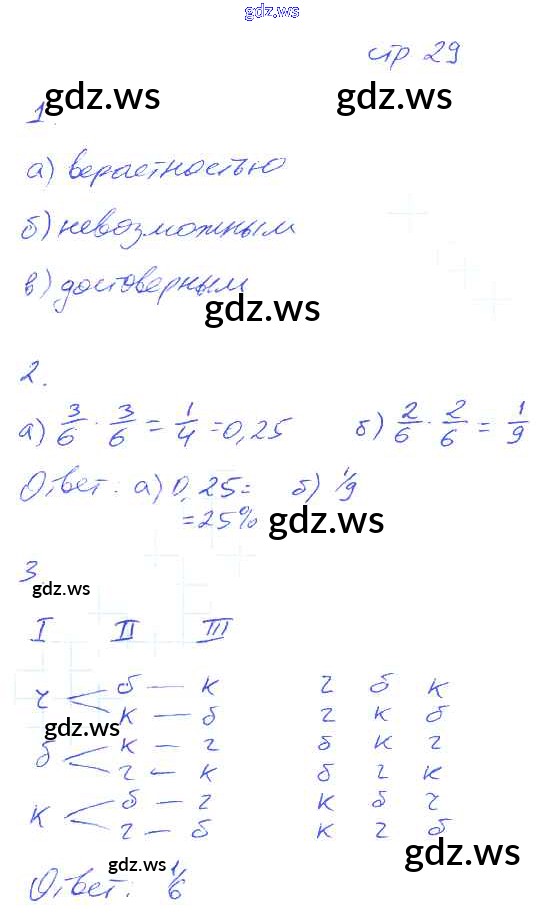 gdz.ws
стр 29
gdz.ws
1.
а) верастностью
б) невозможным
в) достоверным
gdz.ws
2.
а) 3/6 · 3/6 = 1/4 = 0,25 б) 2/6 · 2/6 = 1/9
Ответ: а) 0,25 = б) 1/9
= 25%
gdz.ws
3
gdz.ws
I II III
ч < б — к г б к
к — б г к б
gdz.ws
б < к — г б к г
г — к б г к
к < б — г к б ч
г — б к г б
gdz.ws
gdz.ws
Ответ: 1/6